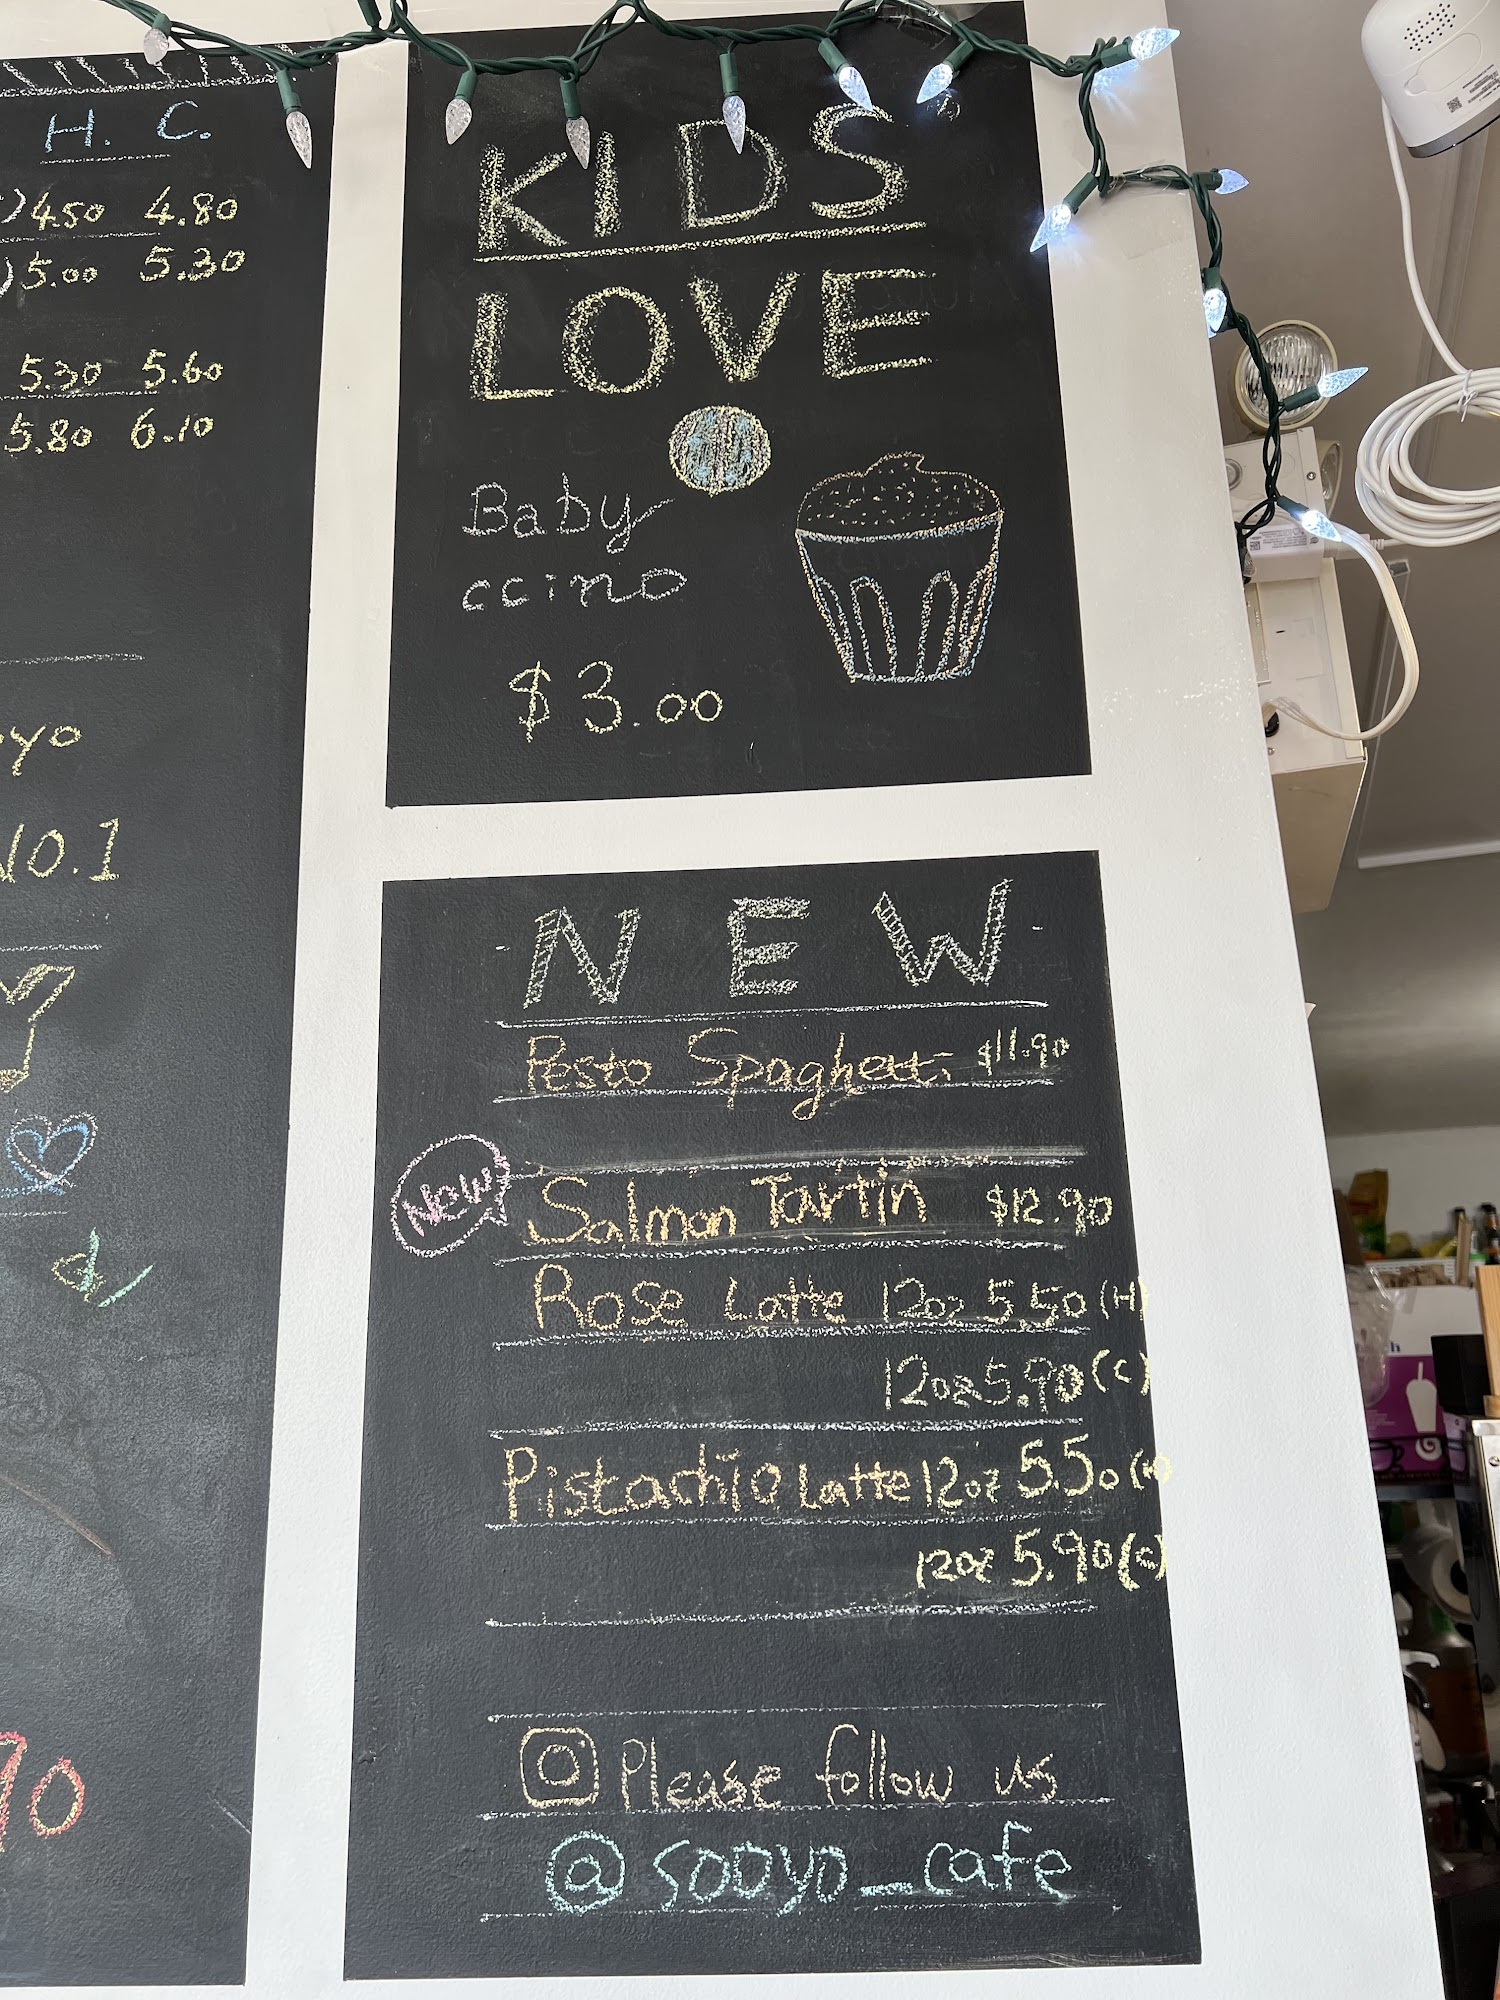 H. C.
4.50 4.80
5.00 5.30
5.30 5.60
5.80 6.10
yo
NO.1
90
KIDS
LOVE
Baby
ccino
$3.00
NEW
Pesto Spaghetti $11.90
New
Salmon Tartin $12.90
Rose Latte 12oz 5.50 (H)
12oz 5.90 (C)
Pistachio Latte 12oz 5.50 (H)
12oz 5.90 (C)
Please follow us
@sooyo_cafe